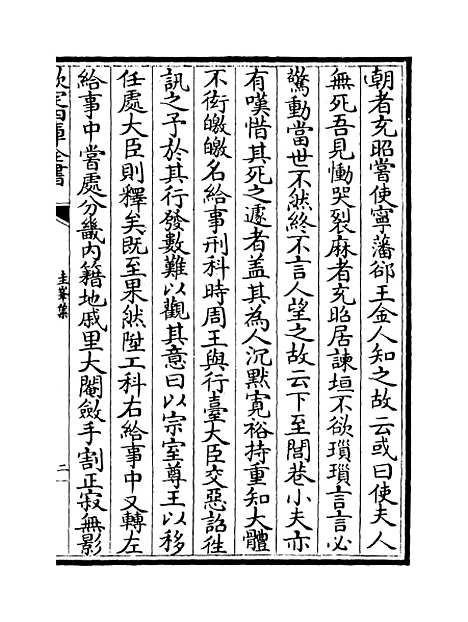 朝者充昭嘗使寧藩郤王金人知之故云或曰使夫人
無死吾見慟哭裂麻者充昭居諫垣不欲瑣瑣言言必
驚動當世不然終不言人望之故云下至閭巷小夫亦
有嘆惜其死之遽者盖其為人沉默寛裕持重知大體
不衒皦皦名給事刑科時周王與行臺大臣交惡詔徃
訊之予於其行發數難以觀其意曰以宗室尊王以移
任處大臣則釋矣既至果然陞工科右給事中又轉左
給事中嘗處分畿内籍地戚里大閹斂手割正寂無影
欽定四庫全書
圭峯集
二